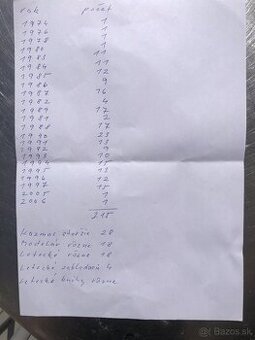 rok počet
1974 1
1976 1
1978 1
1980 1
1983 11
1984 11
1985 12
1986 9
1987 16
1982 4
1989 17
1981 2
1988 17
1990 23
1991 13
1992 9
1993 10
1994 15
1995 13
1996 12
1997 15
2005 1
2006 1
215
Kozmos staršie 28
Modelár rôzne 18
Letecké rôzne 18
Letecké zakladaň 4
Letecké knihy rôzne
© Bazos.sk